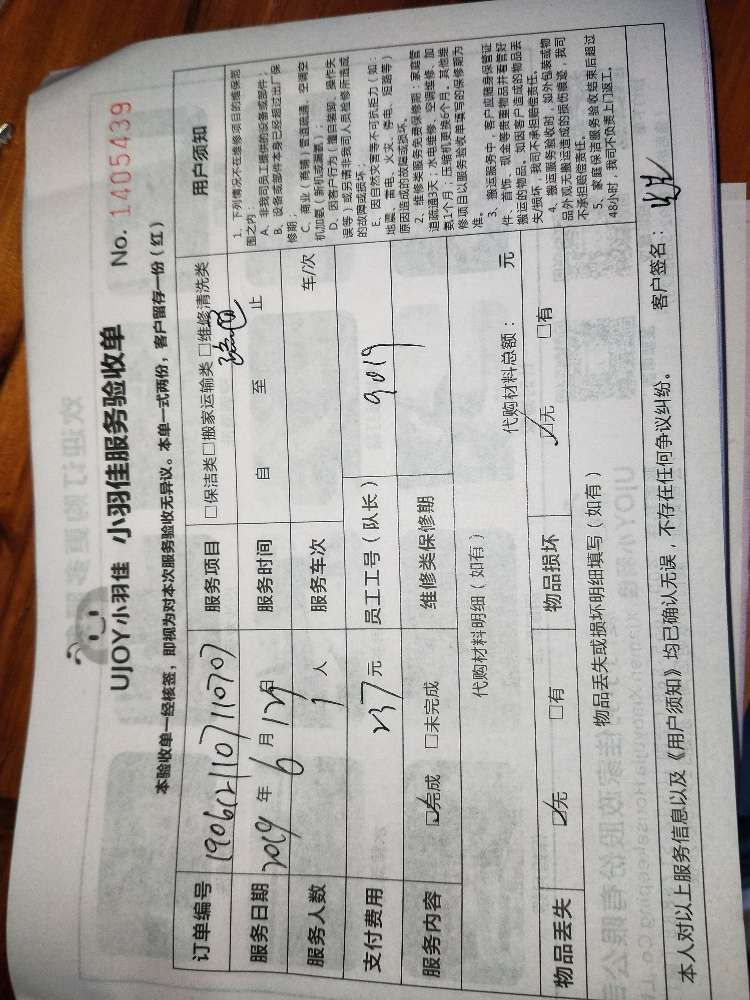 UJOY小羽佳 小羽佳服务验收单 No. 1405439
本验收单一经核签，即视为对本次服务验收无异议。本单一式两份，客户留存一份（红）
订单编号 服务项目 □保洁类□搬家运输类 □维修清洗类
服务日期 2019 年 6 月 12 日 服务时间 自 至 止
服务人数 1 人 服务车次 车/次
支付费用 237 元 员工工号（队长） 9019
服务内容 ☑完成 □未完成 维修类保修期
代购材料明细（如有） 代购材料总额： 元
物品丢失 ☑无 □有 物品损坏 ☑无 □有
物品丢失或损坏明细填写（如有）
用户须知
1、下列情况不在维修项目的维保范
围之内：
A、非我司员工提供的设备或部件；
B、设备或部件本身已经超过出厂保
修期；
C、商业（商铺）管道疏通、空调空
机加氨（新机或漏氨）；
D、因客户行为（擅自装卸、操作失
误等）或另请非我司人员检修所造成
的故障或损坏；
E、因自然灾害等不可抗拒力（如：
地震、雷电、火灾、停电、短路等）
原因造成的故障或损坏。
2、维修类服务免费保修期：家庭管
道疏通3天；水电维修、空调维修、加
氨2个月；压缩机更换6个月。其他维
修项目以服务验收单填写的保修期为
准。
3、搬运服务中，客户应随身保管证
件、首饰、现金等贵重物品并看管好
搬运的物品。如因客户造成的物品丢
失/损坏，我司不承担赔偿责任。
4、搬运服务验收时，如外包装或物
品外观无搬运造成的损伤痕迹，我司
不承担赔偿责任。
5、家庭保洁服务验收结束后超过
48小时，我司不负责上门返工。
本人对以上服务信息以及《用户须知》均已确认无误，不存在任何争议纠纷。 客户签名：